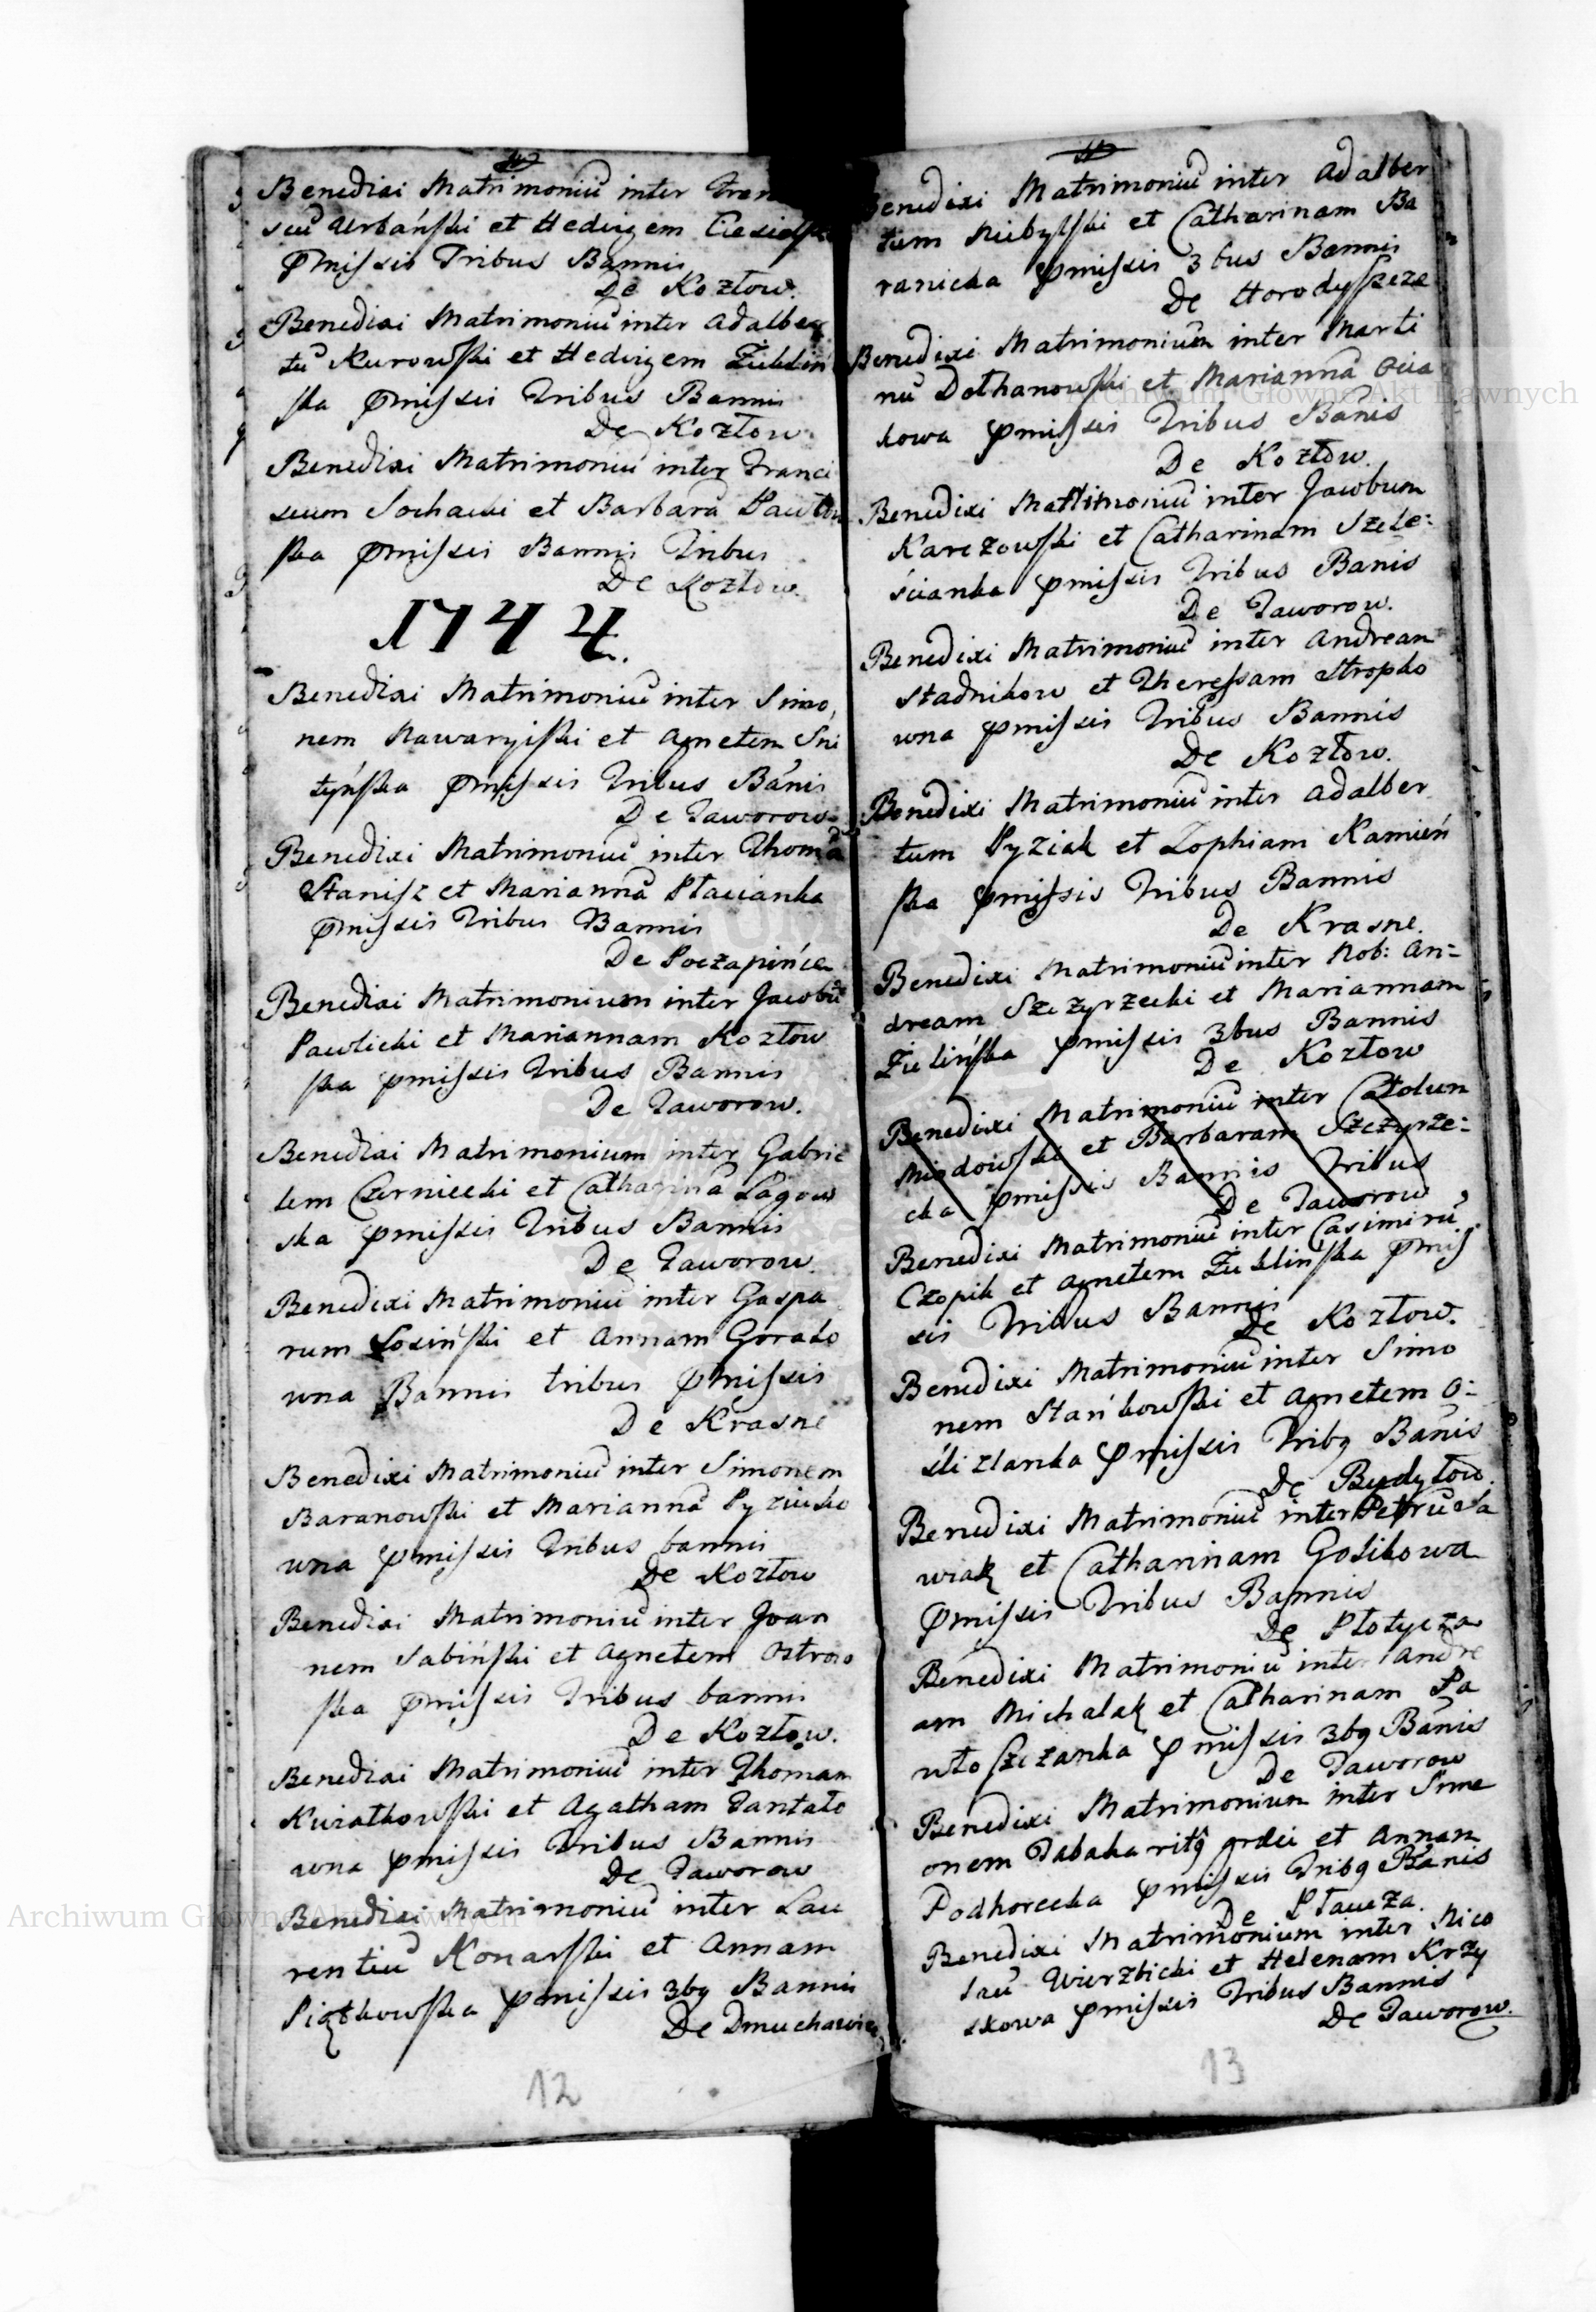 Benedixi Matrimoniū inter Fran
scū Urbański et Hedvigem Ciesielska
pmissis Tribus Bannis
De Kozłow.
Benedixi Matrimoniū inter Adalber
tū Kurowski et Hedvigem Zieliń
ska pmissis Tribus Bannis
De Kozłow.
Benedixi Matrimoniū inter Franci
scum Sochacki et Barbarā Pawłow
ska pmissis Bannis Tribus
De Kozłow.
1744.
Benedixi Matrimoniū inter Simo
nem Nawaryiski et Agnetem Sni
tyńska pmissis Tribus Bānis
De Jaworow
Benedixi Matrimoniū inter Thomā
Stanisz et Mariannā Ptacianka
pmissis Tribus Bannis
De Poczapińce
Benedixi Matrimonium inter Jacobū
Pawlicki et Mariannam Kozłow
ska pmissis Tribus Bannis
De Jaworow.
Benedixi Matrimonium inter Gabrie
lem Czerniecki et Catharinā Łagow
ska pmissis Tribus Bannis
De Jaworow.
Benedixi Matrimoniū inter Gaspa
rum Łosiński et Annam Goralo
wna Bannis tribus pmissis
De Krasne
Benedixi Matrimoniū inter Simonem
Baranowski et Mariannā Pyziuko
wna pmissis Tribus bannis
De Kozłow
Benedixi Matrimoniū inter Joan
nem Sabiński et Agnetem Ostrow
ska pmissis Tribus bannis
De Kozłow.
Benedixi Matrimoniū inter Thomam
Kwiatkowski et Agatham Tantało
wna pmissis Tribus Bannis
De Jaworow
Benedixi Matrimoniū inter Lau
rentiū Konarski et Annam
Piątkowska pmissis 3bq Bannis
De Dmuchawiec
12
Benedixi Matrimoniū inter Adalber
tum Niebylski et Catharinam Ba
ranicka pmissis 3bus Bannis
De Horodyszcze
Benedixi Matrimonium inter Marti
nū Dothanowski et Mariannā
kowa pmissis Tribus Bānis
De Kozłow.
Benedixi Matrimoniū inter Jacobum
Karczowski et Catharinam Szele:
ścianka pmissis Tribus Banis
De Jaworow.
Benedixi Matrimoniū inter Andream
Stadnikow et Theressam Stropko
wna pmissis Tribus Bannis
De Kozłow.
Benedixi Matrimoniū inter Adalber
tum Pyziak et Zophiam Kamień
ska pmissis Tribus Bannis
De Krasne.
Benedixi Matrimoniū inter Nob: An=
dream Szczyrzecki et Mariannam
Zielińska pmissis 3bus Bannis
De Kozłow
Benedixi Matrimoniū inter
Miodowski et Barbaram Szczyrze:
cka pmissis Bannis Tribus
De Jaworow
Benedixi Matrimoniū inter Casimirū
Czopik et Agnetem Zieklińska pmis
sis Tribus Bannis
De Kozłow.
Benedixi Matrimoniū inter Simo
nem Stańkowski et Agnetem O=
ślizlanka pmissis Tribq Bānis
De Budyłow.
Benedixi Matrimoniū inter Petrū Sa
wiak et Catharinam Gosikowa
pmissis Tribus Bannis
De Płotycza
Benedixi Matrimoniū inter Andre
am Michalak et Catharinam Pa
włoszczanka pmissis 3bq Bānis
De Jaworow
Benedixi Matrimonium inter Sime
onem Tabaka ritq grdei et Annam
Podhorecka pmissis Tribq Bānis
De Płaucza.
Benedixi Matrimonium inter Nico
laū Wierzbicki et Helenam Krzy
skowa pmissis Tribus Bannis
De Jaworow.
13
Archiwum Główne Akt Dawnych
Archiwum Główne Akt Dawnych